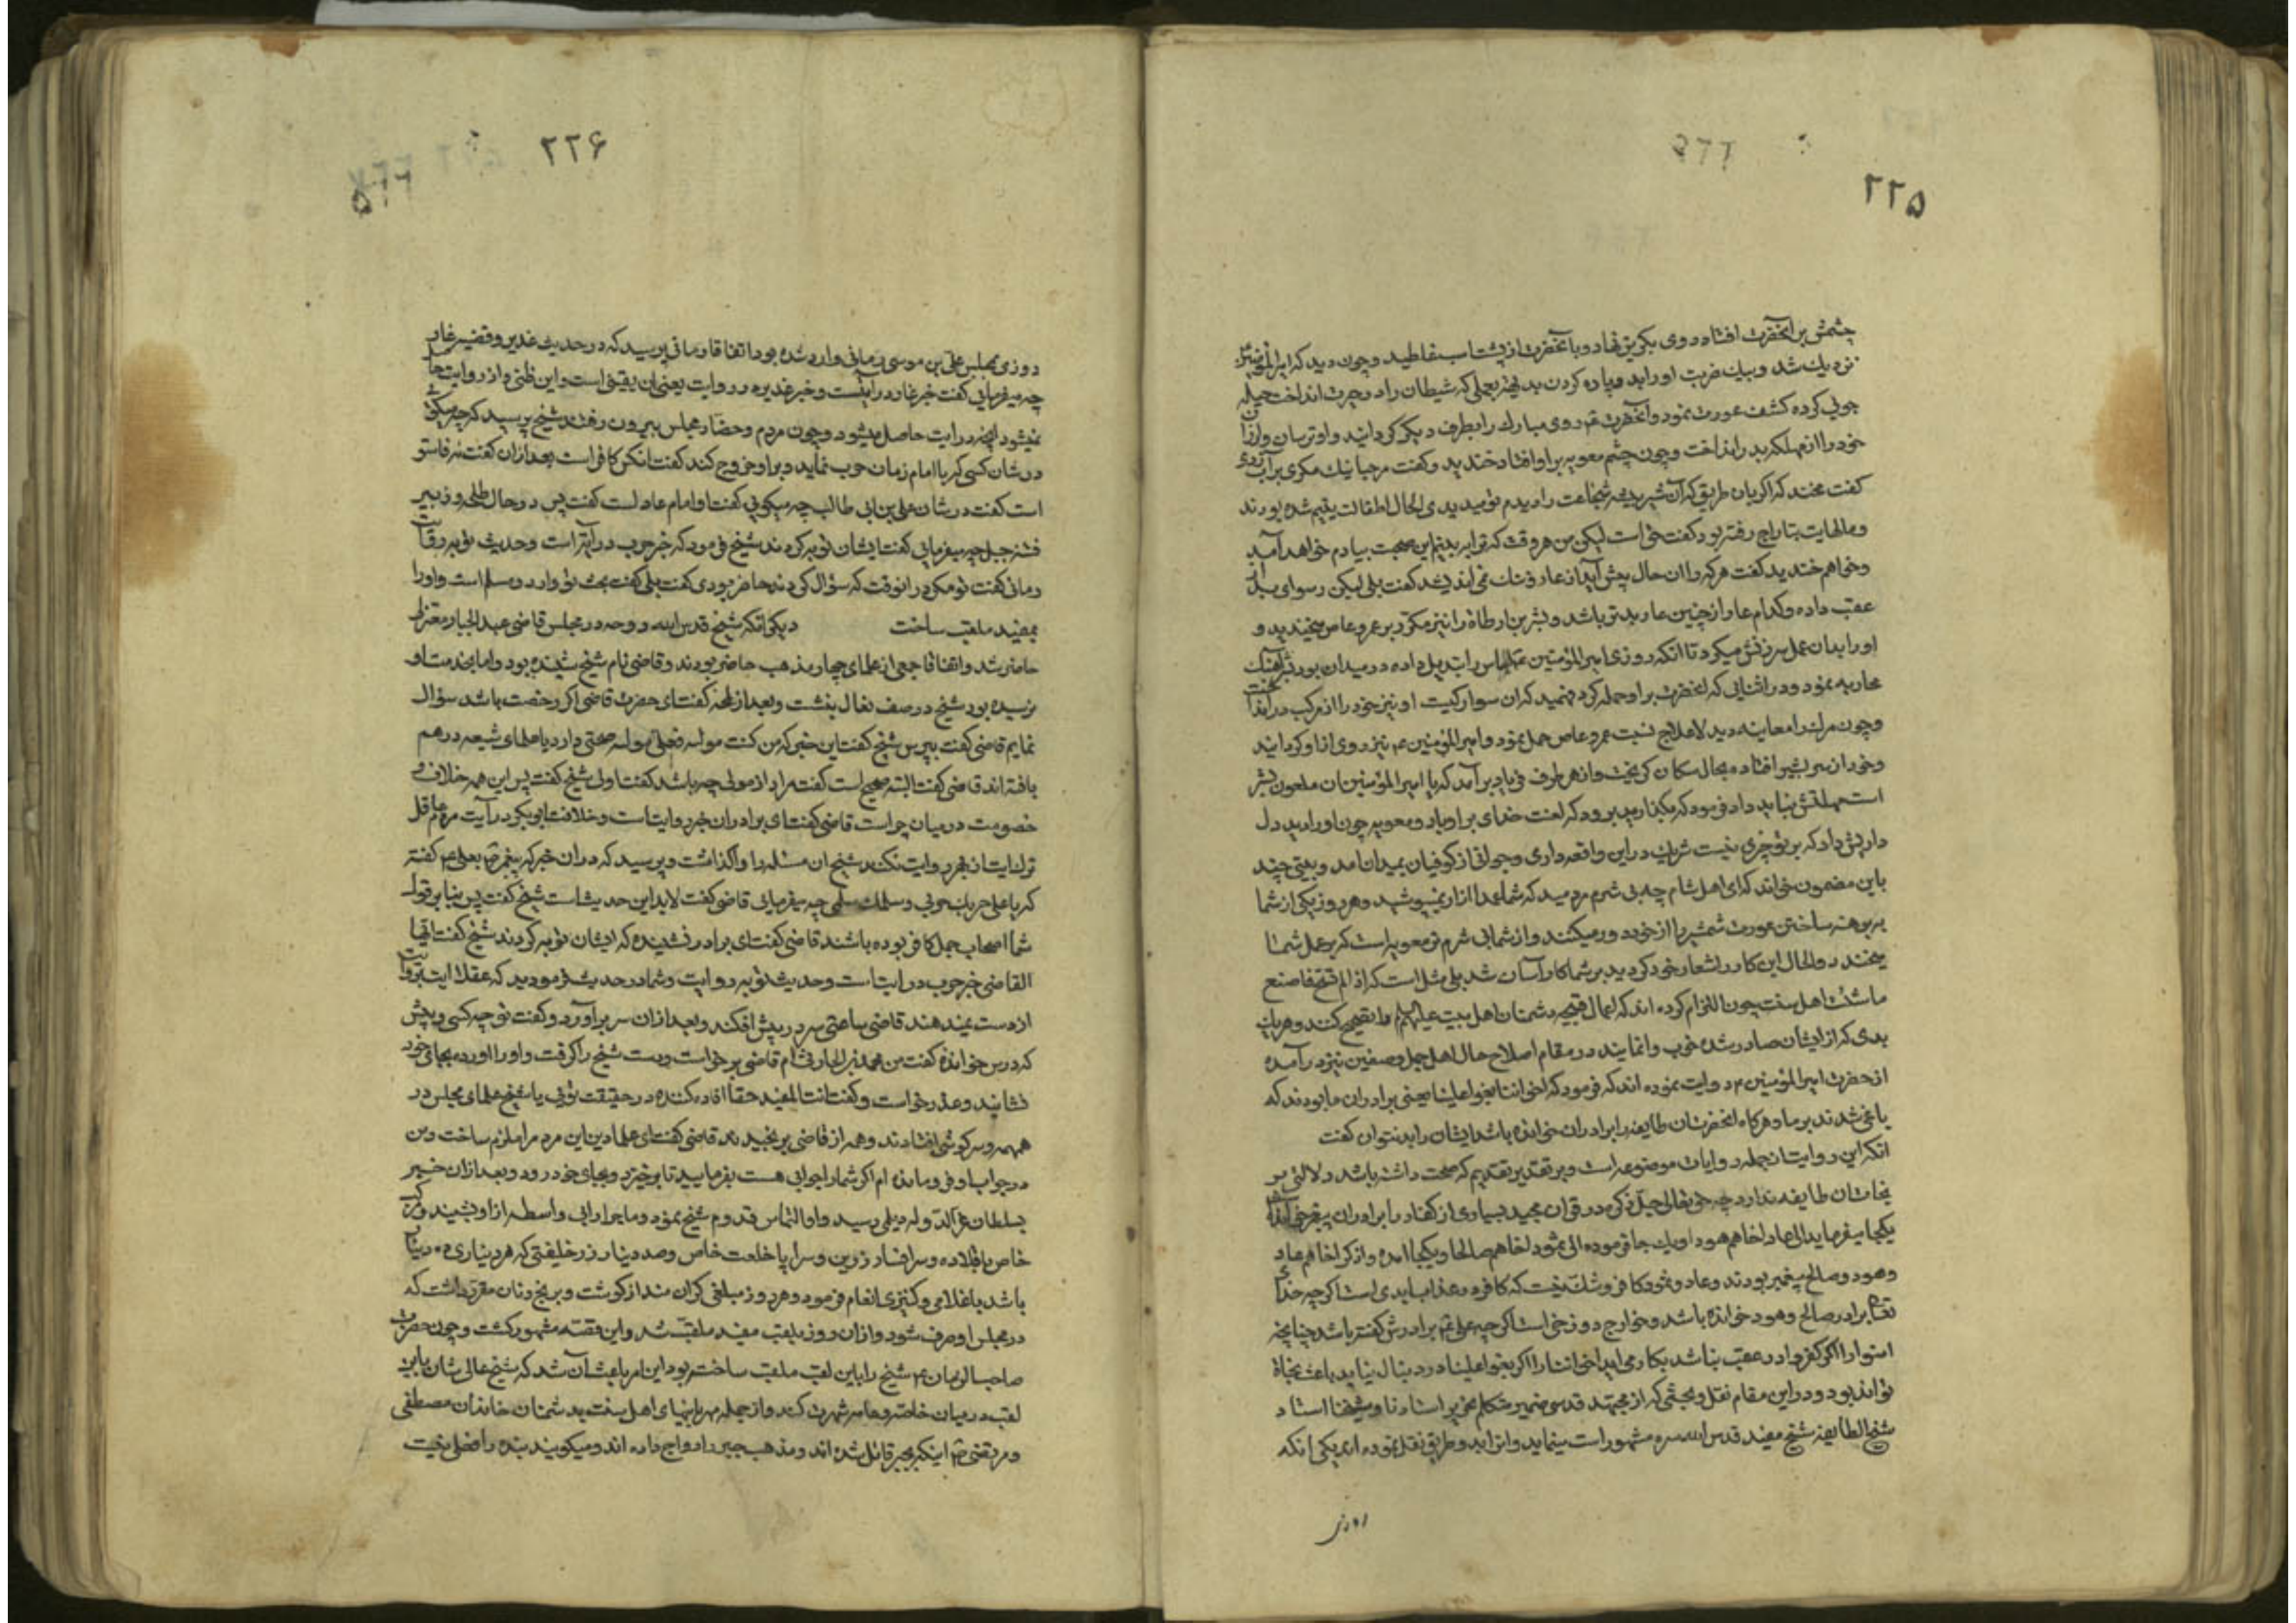 ۲۲۵
چشمش بر آنحضرت افتاد روی بکریز نهاد و با آنحضرت از پشت اسب غلطید و چون دید که امیر المؤمنین
نزدیك شد و بیك ضربت او را بد و پاره کردن بد نهر بعملی که شیطان را در حیرت انداخت حیله
جوئی کرده کشف عورت نمود و آنحضرت روی مبارك را بطرف دیکر کردانید و او ترسان و لرزان
خود را از مهلکه بدر انداخت و چون چشم معویه بر او افتاد خندید و کفت مرحبا نیك مکری بر آب زدی
کفت مخند که اکر بان طریق که آن شیر بیشه شجاعت را دیدم تو میدیدی الحال اطفالت یتیم شده بودند
و مالهایت بتاراج رفته بود کفت حق است لیکن من هر وقت که ترا ببینم این صحبت بیادم خواهد آمد
و خواهم خندید کفت هر که را ان حال پیش آید از عار و ننك نمی اندیشد کفت بلی لیکن رسوای
عقب داده و کدام عار از چنین عار بدتر باشد و بشر بن ارطاة را نیز مکرر بر عمرو عاص میخندید و
او را بدان عمل سرزنش میکرد تا انکه روزی امیر المؤمنین لباس را تبدیل داده در میدان بود بشر آهنك
محاربه نمود و در اثنایی که انحضرت بر او حمله کرد فهمید که ان سوار کیست او نیز خود را از مرکب در انداخت
و چون مرك را معاینه دید لاعلاج نسبت عمرو عاص حمل نمود و امیر المؤمنین ع نیز روی از او کردانید
و خود از سر بشیر افتاده بحال سکان کریخت و از هر طرف فریاد بر آمد که یا امیر المؤمنین ان ملعون بشر
است مهلتش نباید داد فرمود که بکذارید برود که لعنت خدای بر او باد و معویه چون او را دید دل
داریش داد که بر تو چیزی نیست شریك در این واقعه داری و جوانی از کوفیان بمیدان امد و بیتی چند
باین مضمون خواند که ای اهل شام چه بی شرم مردمید که شما را ازار نمیپوشید و هر روز یکی از شما
به برهنه ساختن عورت شمشیر را از خود دور میکند و از شما بی شرم تر معویه است که بر عمل شما
میخندد و الحال این کار را شعار خود کردید بر شما کار آسان شد بلی مثل است که اذا لم تستح فاصنع
ما شئت اهل سنت چون التزام کرده اند که اعمال قبیحه دشمنان اهل بیت علیهم السلام را تصحیح کنند و هر یك
بدی که از ایشان صادر شده خوب وانمایند در مقام اصلاح حال اهل جمل و صفین نیز در آمده
از حضرت امیر المؤمنین ع روایت نموده اند که فرمود که اخواننا بغوا علینا یعنی برادران ما بودند که
یاغی شدند بر ما و هرکاه انحضرت ان طایفه را برادران خوانده باشد ایشان را بد نتوان کفت
انکه این روایت از جمله روایات موضوعه است و بر تقدیر تقدیم که صحت داشته باشد دلالتی بر
نجات ان طایفه ندارد چه حق تعالی جل ذکره در قران مجید بسیاری از کفار را برادران پیغمبر خوانده
یکجا میفرماید الی عاد اخاهم هودا و یك جا فرموده الی ثمود اخاهم صالحا و یکجا امده واذکر اخا عاد
و هود و صالح پیغمبر بودند و عاد و ثمود کافر و شك نیست که کافر در عذاب ابدی است اکر چه خدای
تعالی برادر صالح و هود خوانده باشد و خوارج دوزخی است اکر چه علی ع برادرش کفته باشد چنانچه
امنوا را اکر کفروا در عقب نباشد بکار می آید اخواننا را اکر بغوا علینا در دنبال نیاید باعث نجاة
تواند بود و در این مقام نقل و بحثی که از مجتهد قدسی ضمیر متکلم نحریر استادنا و شیخنا استاد
شیخ الطایفه شیخ مفید قدس الله سره مشهور است مینماید و انرا بدو طریق نقل نموده اند یکی انکه
روزی
۲۲۶
روزی مجلس علی بن موسی رمانی وارد شده بود اتفاقا رمانی پرسید که در حدیث غدیر و قضیه غار
چه میفرمایی کفت خبر غار درایت است و خبر غدیر روایت یعنی ان یقینی است و این ظنی و از روایت حاصل
نمیشود انچه از درایت حاصل میشود و چون مردم و حضار مجلس بیرون رفتند شیخ پرسید که چه میکوئی
در شان کسی که با امام زمان حرب نماید و بر او خروج کند کفت انکس کافر است بعد ازان کفت نه فاسق
است کفت در شان علی بن ابی طالب چه میکویی کفت او امام عادل است کفت پس در حال طلحه و زبیر
فتنه جمل چه میفرمایی کفت ایشان توبه کردند شیخ فرمود که خبر حرب درایت است و حدیث توبه روایت
رمانی کفت تو مکر در انوقت که سؤال کردند حاضر بودی کفت بلی کفت بحث تو وارد و مسلم است و او را
بمفید ملقب ساخت دیکر انکه شیخ قدس الله روحه در مجلس قاضی عبد الجبار معتزلی
حاضر شد و اتفاقا جمعی از علمای چهار مذهب حاضر بودند و قاضی نام شیخ شنیده بود و اما بخدمت او
نرسیده بود شیخ در صف نعال بنشست و بعد از لمحه کفت ای حضرت قاضی اکر رخصت باشد سؤال
نمایم قاضی کفت بپرس شیخ کفت این خبر که من کنت مولاه فعلی مولاه صحتی دارد یا علمای شیعه در هم
بافته اند قاضی کفت البته صحیح است کفت مراد از مولی چه باشد کفت اولی شیخ کفت پس این همه خلاف و
خصومت در میان چراست قاضی کفت ای برادر ان خبر روایت است و خلافت ابوبکر درایت مردم عاقل
ترك درایت از بهر روایت نکنند شیخ ان مسئله را واکذاشت و پرسید که در ان خبر که پیغمبر بعلی ع کفته
که یا علی حربك حربی و سلمك سلمی چه میفرمایی قاضی کفت لابد این حدیث است شیخ کفت پس بنا بر قول
شما اصحاب جمل کافر بوده باشند قاضی کفت ای برادر نشنیده که ایشان توبه کردند شیخ کفت ایها
القاضی خبر حرب درایت است و حدیث توبه روایت و شما در حدیث فرمودید که عقلا درایت بروایت
از دست نمیدهند قاضی ساعتی سر در پیش افکند و بعد ازان سر بر آورد و کفت تو چه کسی و پیش
که درس خوانده کفت من محمد بن قاضی بر خواست و دست شیخ را کرفت و او را اورده بجای خود
نشانید و عذر خواست و کفت انت المفید حقا افاده کننده در حقیقت توئی یا شیخ علمای مجلس در
همهمه و سرکوشی افتادند و همه از قاضی برنجیدند قاضی کفت ای علماء دین این مرد مرا ملزم ساخت و من
در جواب او فرو مانده ام اکر شما را جوابی هست بفرمایید تا برخیزد و بجای خود رود و بعد ازان خبر
بسلطان عز الدوله دیلمی رسید و او التماس قدوم شیخ نمود و ماجرا را بی واسطه از او شنید و مرکب
خاص با قلاده و سرافسار زرین و سراپا خلعت خاص و صد دینار زر خلیفتی که هر دیناری ده دینار
باشد با غلامی و کنیزی انعام فرمود و هر روز مبلغی کران مند از کوشت و برنج و نان مقرر داشت که
در مجلس او صرف شود و ازان روز بلقب مفید ملقب شد و این قصه مشهور کشت و چون حضرت
صاحب الزمان ع شیخ را باین لقب ملقب ساخته بود این امر باعث آن شد که شیخ عالی شان باین
لقب در میان خاصه و عامه شهرت کند و از جمله مهربانیهای اهل سنت بدشمنان خاندان مصطفی
و مرتضی اینکه بجبر قائل شده اند و مذهب جبر را رواج داده اند و میکویند بنده را فعلی نیست